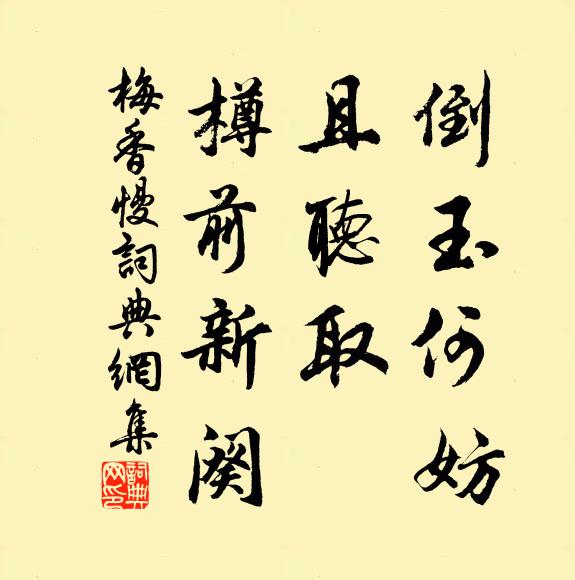 倒玉何妨
且聽取
樽前新闋
梅香慢詞典網集
詞典网印